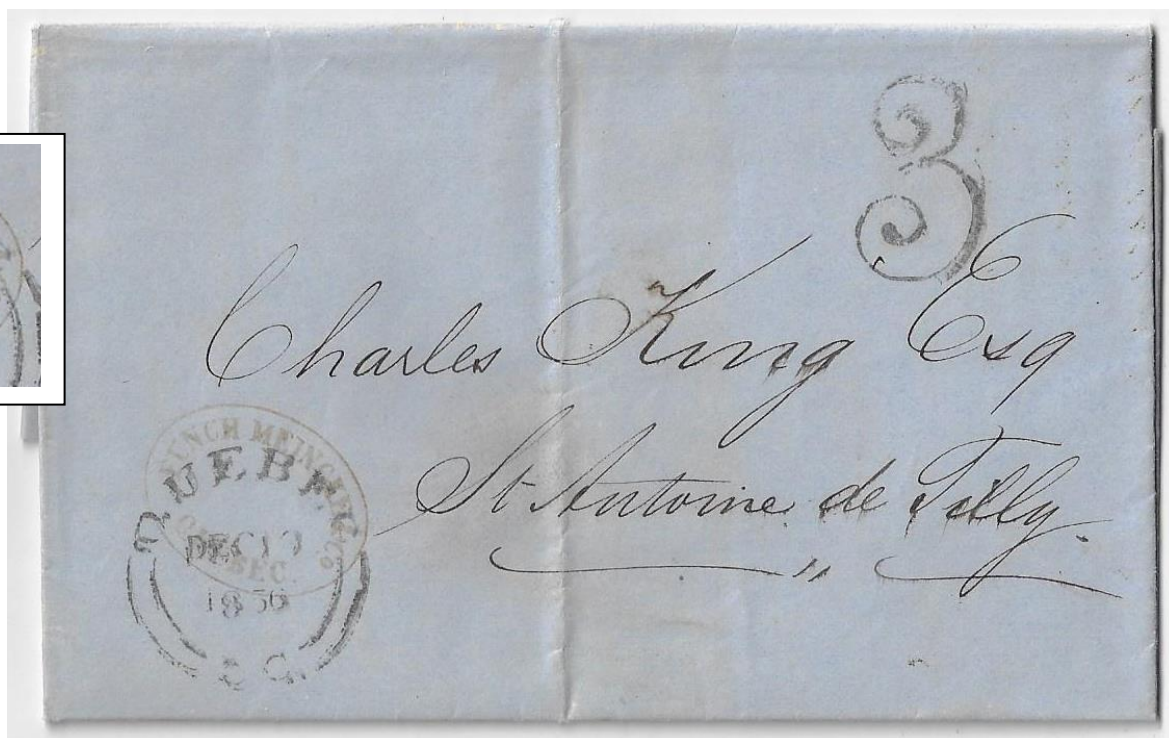 3
Charles King Esq
St Antoine de Tilly.
QUEBEC
DEC 13
1856